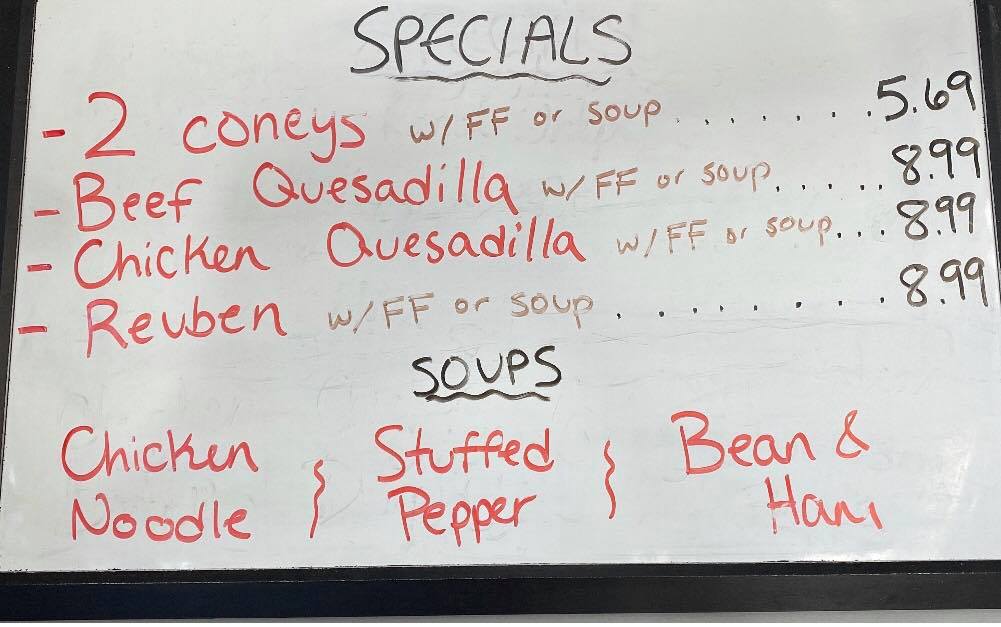 SPECIALS
- 2 coneys w/FF or soup . . . . . . . 5.69
- Beef Quesadilla w/FF or soup. . . . . . 8.99
- Chicken Quesadilla w/FF or soup. . . 8.99
- Reuben w/FF or soup . . . . . . . . . 8.99
SOUPS
Chicken Stuffed Bean &
Noodle Pepper Ham